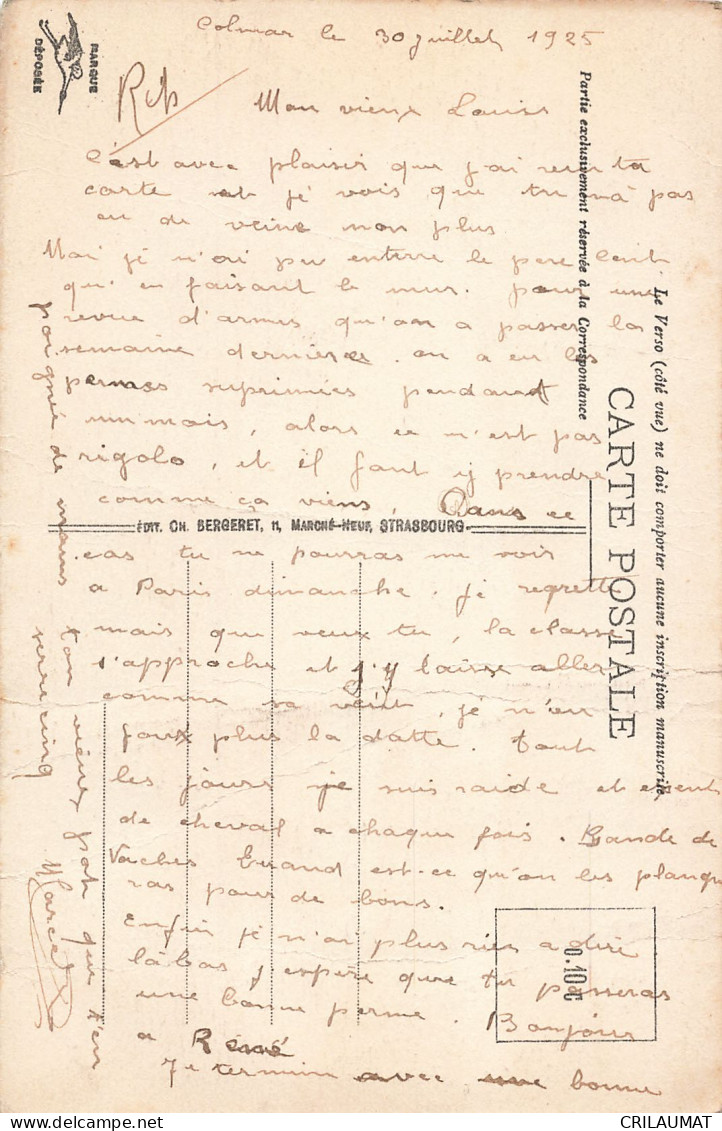 Colmar le 30 juillet 1925
MARQUE
DÉPOSÉE
Rép
Mon vieux Louis
C'est avec plaisir que j'ai reçu ta
carte et je vois que tu n'a pas
eu de veine non plus
Moi je n'ai pu enterre le pere Cent
qu'en faisant le mur. pour une
revue d'armes qu'on a passer la
semaine dernière on a eu les
permes suprimées pendant
un mois, alors ce n'est pas
rigolo, et il faut y prendre
comme ça viens, Dans ce
cas tu ne pourras me voir
a Paris dimanche. Je regrette
mais que veux tu, la classe
s'approche et j'y laisse aller
comme sa veut, je n'en
foux plus la datte. tout
les jours je suis raide et
de cheval a chaque fois. Bande de
Vaches Quand est-ce qu'on les plaque
ras pour de bons.
Enfin je n'ai plus rien a dire
làbas j'espère que tu passeras
une bonne perme. Bonjour
a René
Je termin avec une bonne
poignée de mains
ton vieux pote que t'en
serre cinq
Marcel
Partie exclusivement réservée à la Correspondance
Le Verso (côté vue) ne doit comporter aucune inscription manuscrite.
CARTE POSTALE
ÉDIT. CH. BERGERET, 11, MARCHÉ-NEUF, STRASBOURG
0.10 €
CRILAUMAT